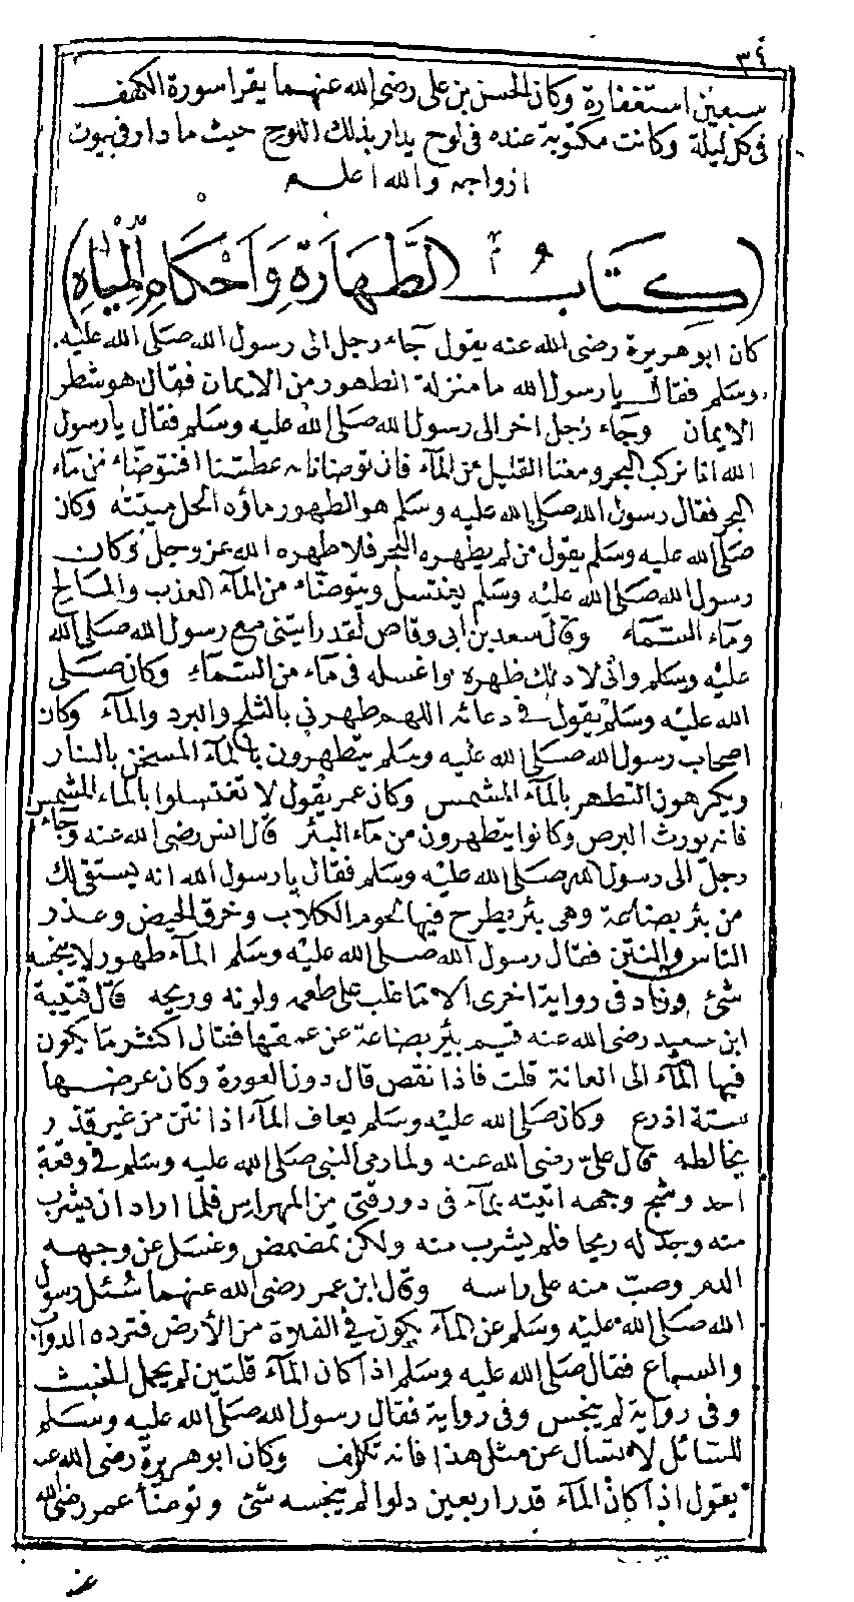 ٣٤
سبعين استغفارة وكان الحسن بن على رضى الله عنهما يقرا سورة الكهف
فى كل ليلة وكانت مكتوبة عنده فى لوح يدار بذلك اللوح حيث ما دار فى بيوت
ازواجه والله اعلم
(كتاب الطهارة واحكام المياه)
كان ابو هريرة رضى الله عنه يقول جاء رجل الى رسول الله صلى الله عليه
وسلم فقال يا رسول الله ما منزلة الطهور من الايمان فقال هو شطر
الايمان وجاء رجل اخر الى رسول الله صلى الله عليه وسلم فقال يا رسول
الله انا نركب البحر ومعنا القليل من المآء فان توضانا به عطشنا افنتوضاء من مآء
البحر فقال رسول الله صلى الله عليه وسلم هو الطهور ماؤه الحل ميتته وكان
صلى الله عليه وسلم يقول من لم يطهره البحر فلا طهره الله عز وجل وكان
رسول الله صلى الله عليه وسلم يغتسل ويتوضاء من المآء العذب والمالح
ومآء السمآء وقال سعد بن ابى وقاص لقد رايتنى مع رسول الله صلى الله
عليه وسلم وانى لادلك ظهره واغسله فى مآء من السمآء وكان صلى
الله عليه وسلم يقول فى دعائه اللهم طهرنى بالثلج والبرد والمآء وكان
اصحاب رسول الله صلى الله عليه وسلم يتطهرون بالمآء المسخن بالنار
ويكرهون التطهر بالمآء المشمس وكان عمر يقول لا تغتسلوا بالماء المشمس
فانه يورث البرص وكانوا يتطهرون من مآء البئر قال انس رضى الله عنه وجاء
رجل الى رسول الله صلى الله عليه وسلم فقال يا رسول الله انه يستقى لك
من بئر بضاعة وهى بئر يطرح فيها لحوم الكلاب وخرق الحيض وعذر
الناس والنتن فقال رسول الله صلى الله عليه وسلم المآء طهور لا ينجسه
شئ وزاد فى رواية اخرى الا ما غلب على طعمه ولونه وريحه قال قتيبة
ابن سعيد رضى الله عنه قيم بئر بضاعة عن عمقها فقال اكثر ما يكون
فيها المآء الى العانة قلت فاذا نقص قال دون العورة وكان عرضها
ستة اذرع وكان صلى الله عليه وسلم يعاف المآء اذا نتن من غير قذر
يخالطه قال على رضى الله عنه ولما رمى النبى صلى الله عليه وسلم فى وقعة
احد وشج وجهه اتيته بمآء فى دورقتى من المهراس فلما اراد ان يشرب
منه وجد له ريحا فلم يشرب منه ولكن تمضمض وغسل عن وجهه
الدم وصب منه على راسه وقال ابن عمر رضى الله عنهما سئل رسول
الله صلى الله عليه وسلم عن المآء يكون فى الفلاة من الأرض فترده الدواب
والسباع فقال صلى الله عليه وسلم اذا كان المآء قلتين لم يحمل الخبث
وفى رواية لم ينجس وفى رواية فقال رسول الله صلى الله عليه وسلم
للسائل لا تسال عن مثل هذا فانه تكلف وكان ابو هريرة رضى الله عنه
يقول اذا كان المآء قدر اربعين دلوا لم ينجسه شئ وتوضأ عمر رضى الله
عنه